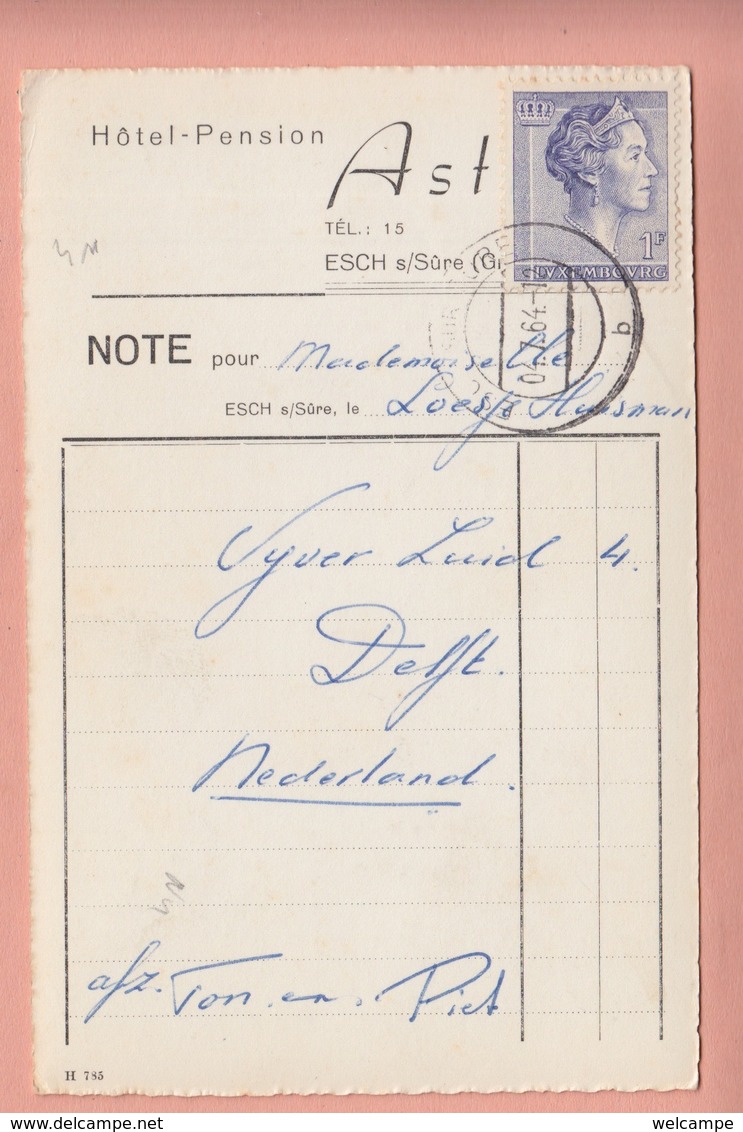 Hôtel-Pension
Ast
TÉL.: 15
ESCH s/Sûre (G
1F
LVXEMBOVRG
04.7.64.-1
b
NOTE pour Mademoiselle
ESCH s/Sûre, le Loesje Huisman
Vyver Zuid 4.
Delft.
Nederland.
afz. Ton en Piet
H 785
www.delcampe.net
welcampe